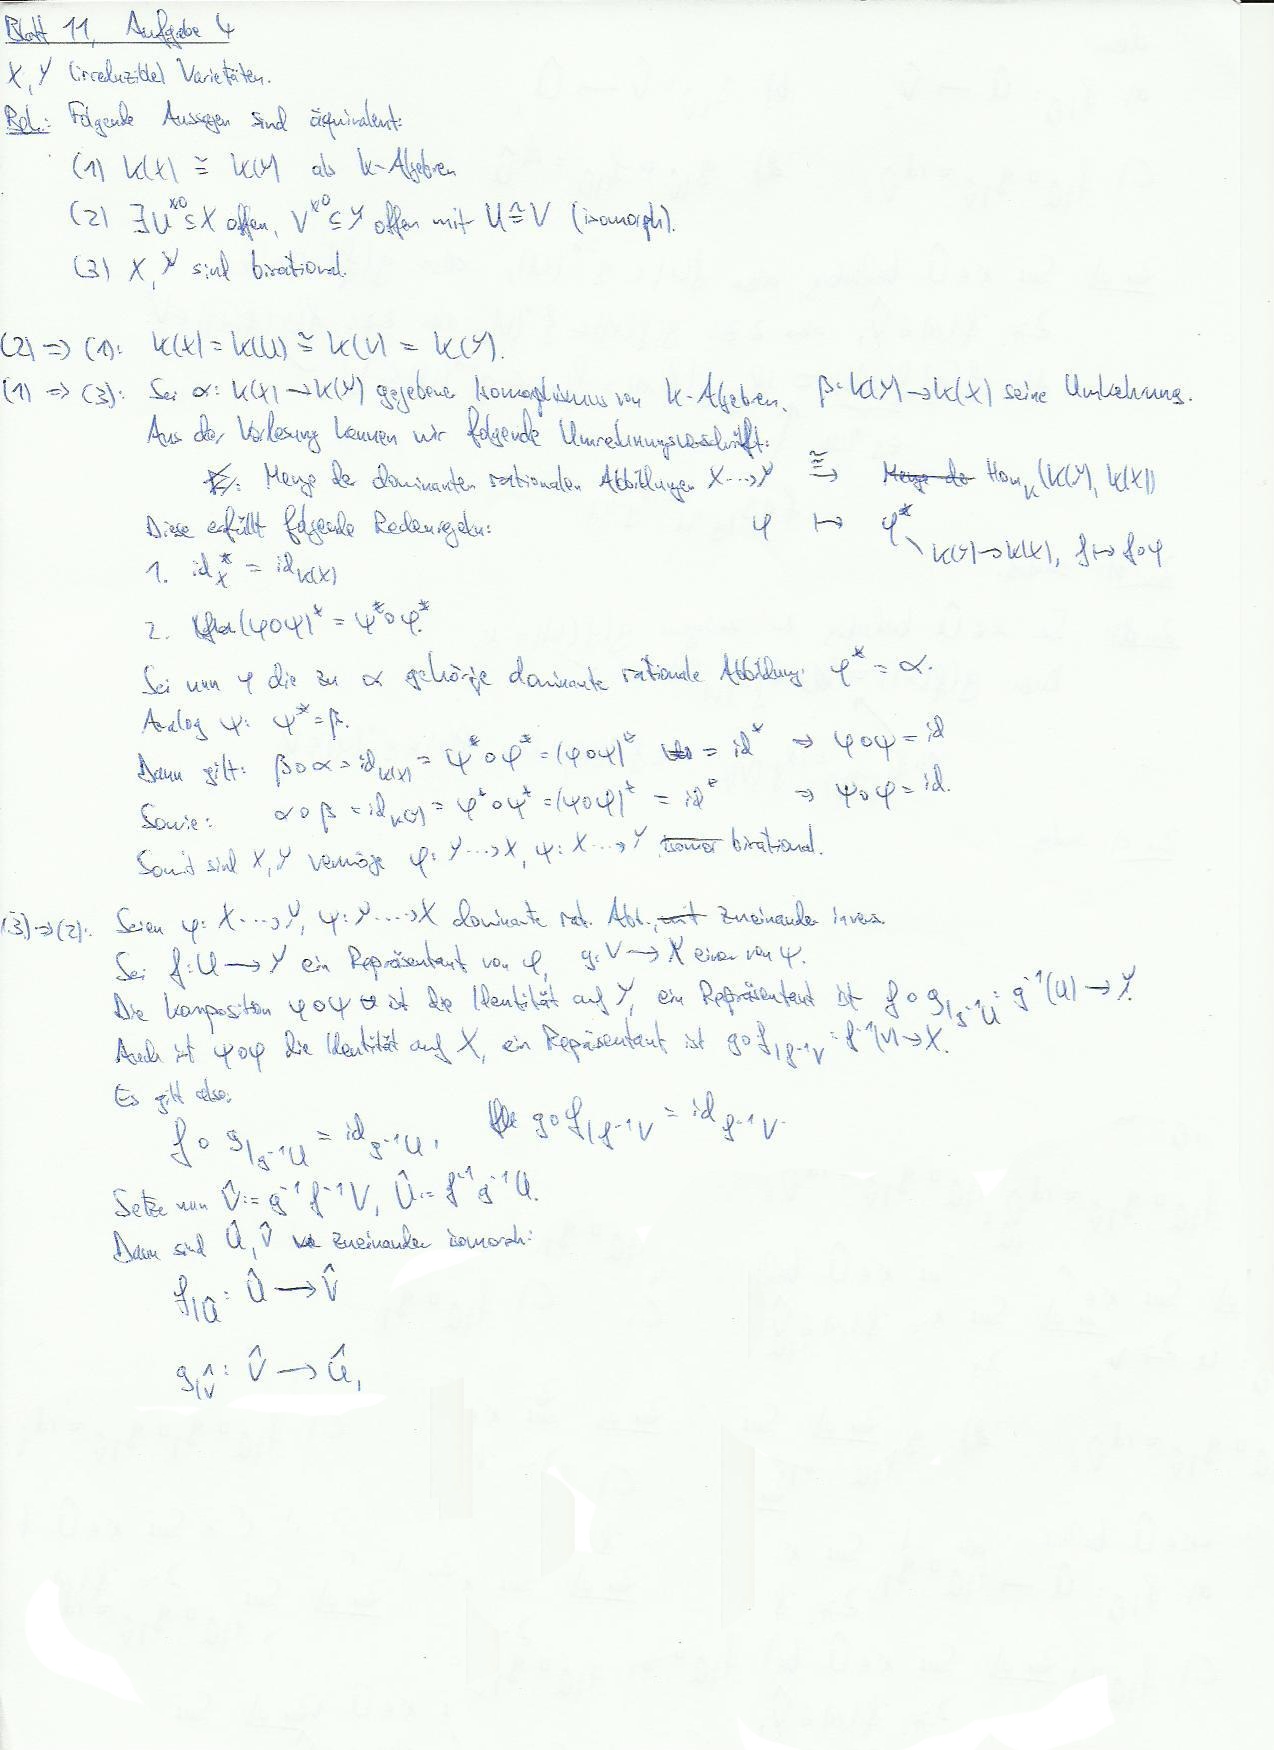 Blatt 11, Aufgabe 4
X, Y (irreduzible) Varietäten.
Beh.: Folgende Aussagen sind äquivalent:
(1) K(X) ≅ K(Y) als K-Algebren
(2) ∃ U^{≠∅} ⊆ X offen, V^{≠∅} ⊆ Y offen mit U ≅ V (isomorph).
(3) X, Y sind birational.
(2) ⇒ (1): K(X) = K(U) ≅ K(V) = K(Y).
(1) ⇒ (3): Sei α: K(X) → K(Y) gegebene Isomorphismus von K-Algebren, β: K(Y) → K(X) seine Umkehrung.
Aus der Vorlesung kennen wir folgende Umrechnungsvorschrift:
Menge der dominanten rationalen Abbildungen X ⇢ Y ≅→ Hom_K(K(Y), K(X))
φ ↦ φ^*
K(Y) → K(X), f ↦ f∘φ
Diese erfüllt folgende Rechenregeln:
1. id_X^* = id_{K(X)}
2. (φ∘ψ)^* = ψ^*∘φ^*.
Sei nun φ die zu α gehörige dominante rationale Abbildung: φ^* = α.
Analog ψ: ψ^* = β.
Dann gilt: β∘α = id_{K(X)} = ψ^*∘φ^* = (φ∘ψ)^* = id^* ⇒ φ∘ψ = id
Sowie: α∘β = id_{K(Y)} = φ^*∘ψ^* = (ψ∘φ)^* = id^* ⇒ ψ∘φ = id.
Somit sind X, Y vermöge φ: Y ⇢ X, ψ: X ⇢ Y birational.
(3) ⇒ (2): Seien φ: X ⇢ Y, ψ: Y ⇢ X dominante rat. Abb., zueinander invers.
Sei f: U → Y ein Repräsentant von φ, g: V → X einer von ψ.
Die Komposition φ∘ψ ist die Identität auf Y, ein Repräsentant ist f∘g|_{g^{-1}U}: g^{-1}(U) → Y.
Auch ist ψ∘φ die Identität auf X, ein Repräsentant ist g∘f|_{f^{-1}V}: f^{-1}(V) → X.
Es gilt also:
f∘g|_{g^{-1}U} = id_{g^{-1}U}, g∘f|_{f^{-1}V} = id_{f^{-1}V}.
Setze nun V̂ := g^{-1}f^{-1}V, Û := f^{-1}g^{-1}U.
Dann sind Û, V̂ zueinander isomorph:
f|_Û: Û → V̂
g|_V̂: V̂ → Û,